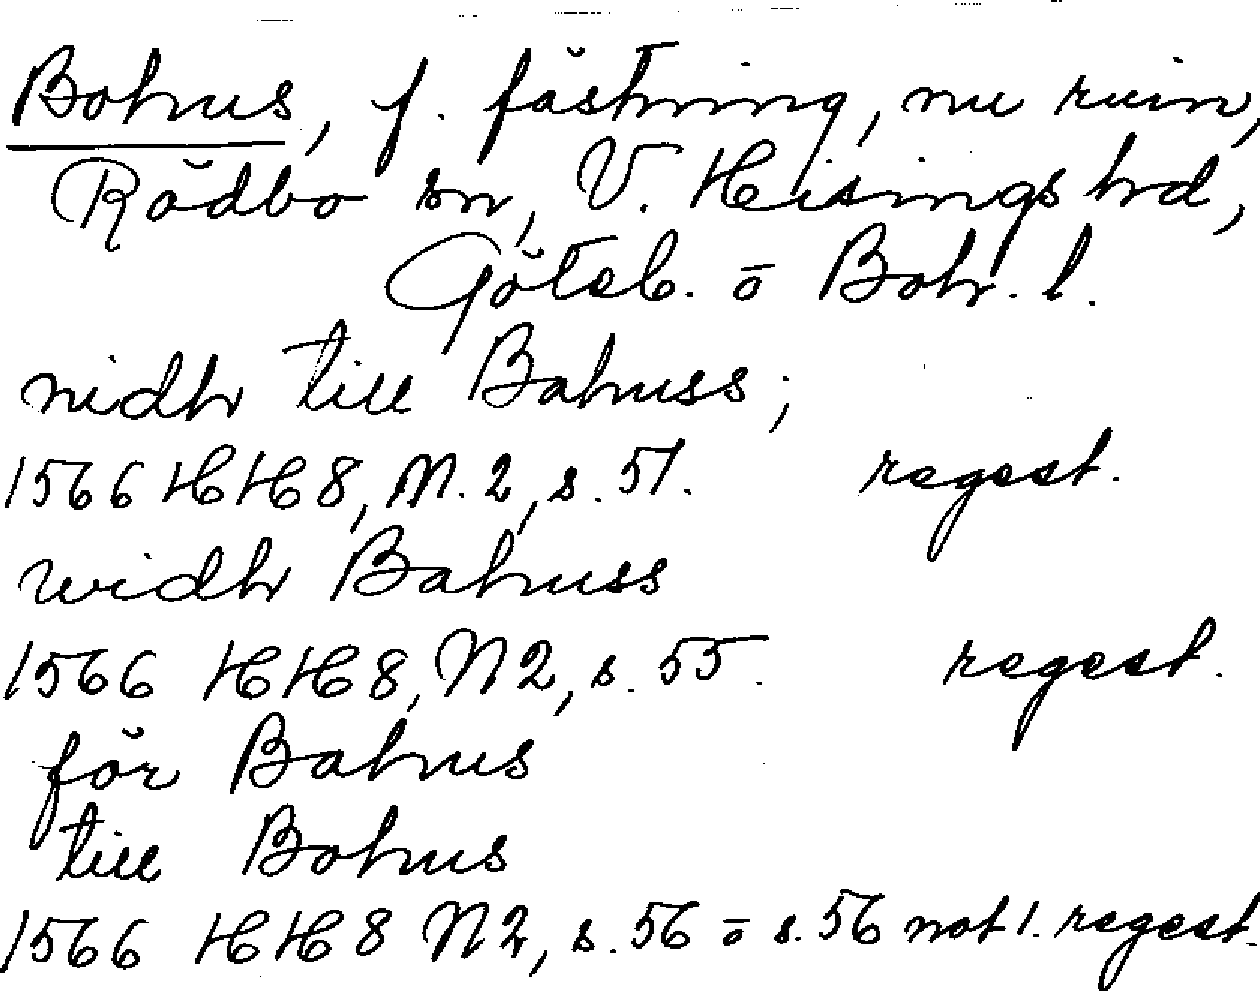 Bohus, f. fästning, nu ruin,
Rödbo sn, V. Hisings hrd,
Göteb. o Boh. l.
nidh till Bahuss;
1566 HH 8, N. 2, s. 51. regest.
widh Bahuss
1566 HH 8, N 2, s. 55. regest.
för Bahus
till Bohus
1566 HH 8 N 2, s. 56 o s. 56 not 1. regest.